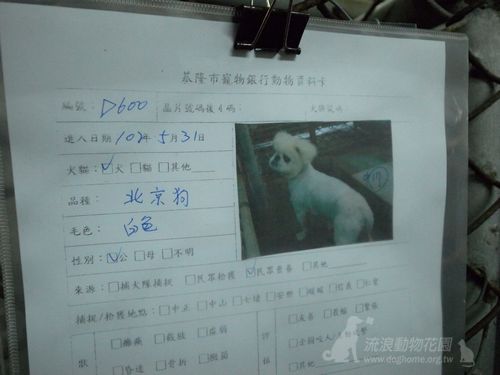 基隆市寵物銀行動物資料卡
編號：D600 晶片號碼後4碼： 犬籍號碼：
進入日期 102年 5月 31日
犬貓：☑犬 □貓 □其他
品種： 北京狗
毛色： 白色
性別：☑公 □母 □不明
來源：□捕犬隊捕捉 □民眾拾獲 ☑民眾棄養 □其他
捕捉/拾獲地點：□中正 □中山 □七堵 □安樂 □暖暖 □信義 □仁愛
狀 □癱瘓 □截肢 □虛弱
□昏迷 □骨折
□其他
流浪動物花園
www.doghome.org.tw